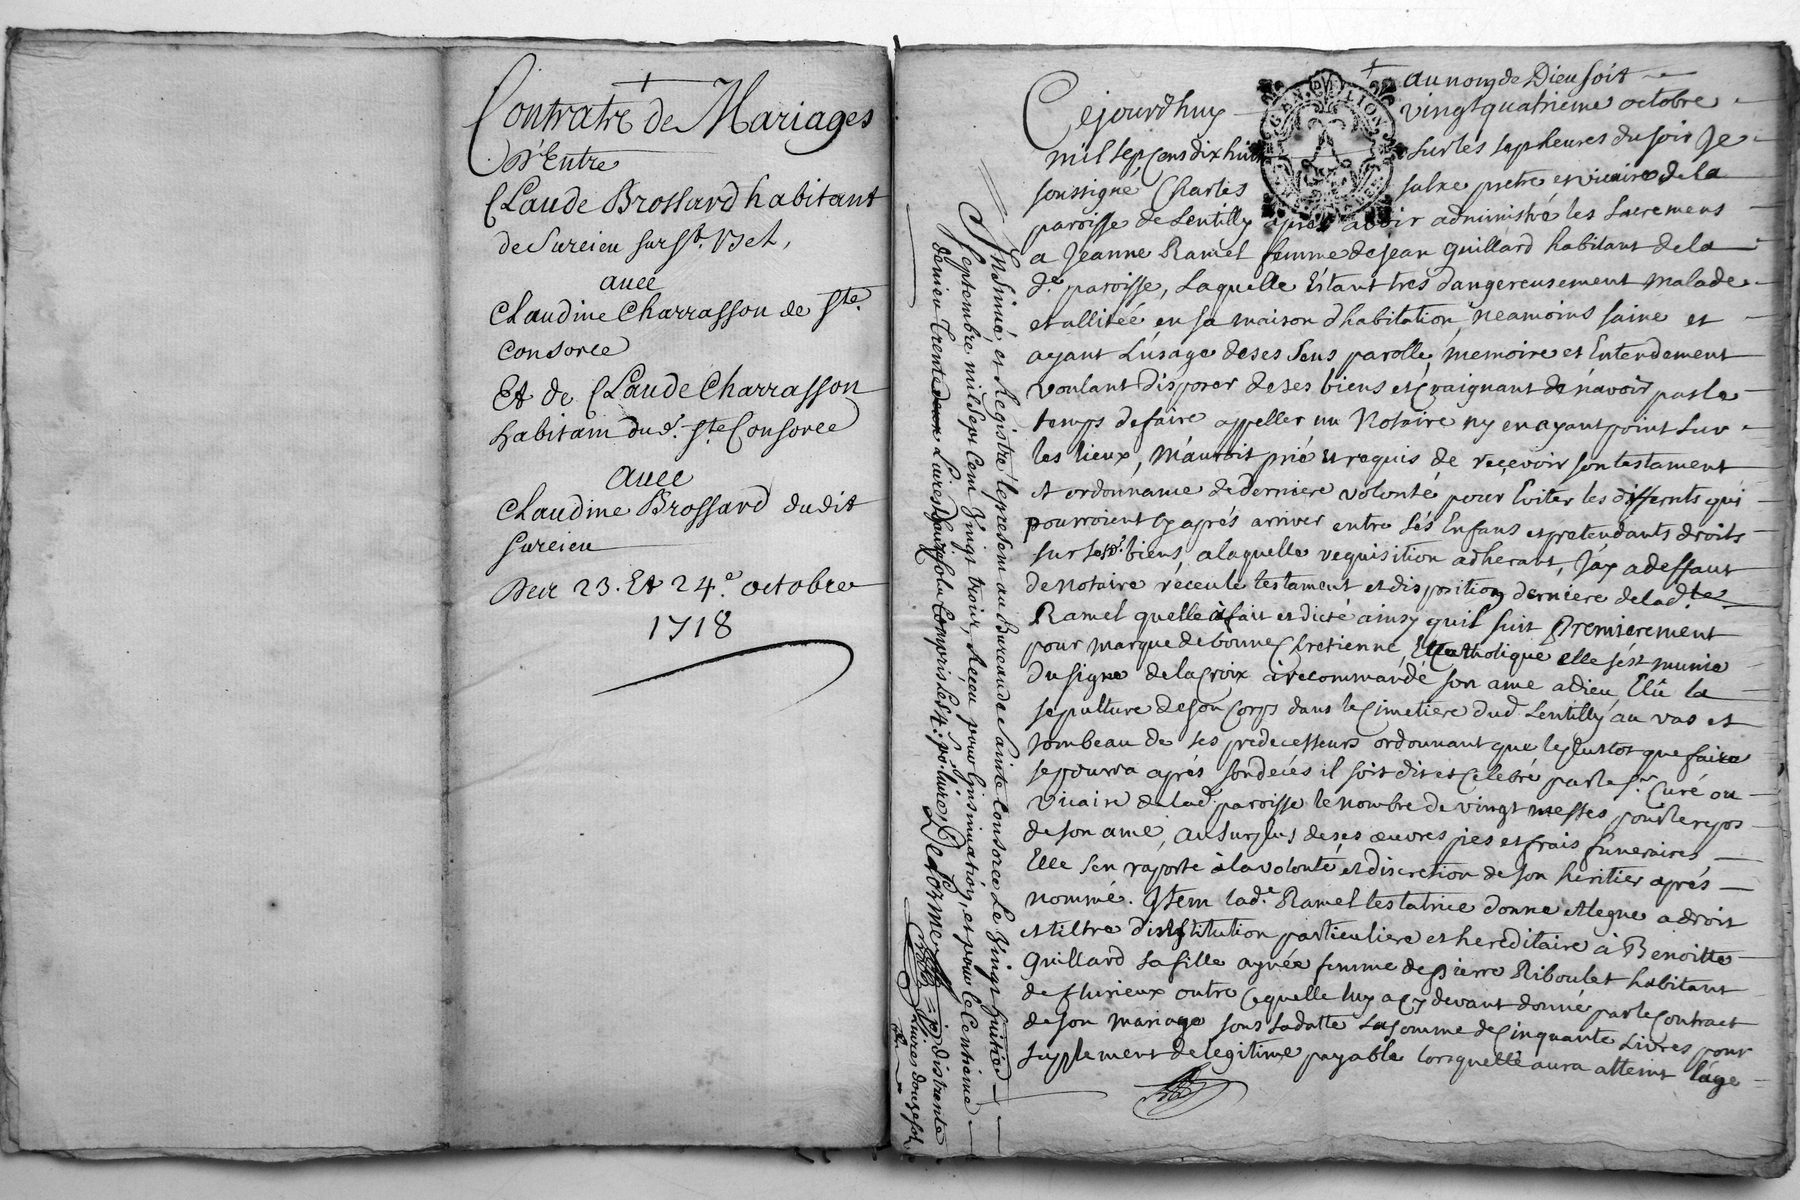 Contratre de Mariages
D'Entre
Claude Brossard habitant
de Sureieu sur St. Bel,
avec
Claudine Charrasson de Ste.
Consorce
Et de Claude Charrasson
habitam dud. Ste Consorce
avec
Claudine Brossard dudit
Sureieu
Des 23. Et 24.e octobre
1718
au nom de Dieu soit
Cejourdhuy vingtquatrieme octobre
mil sep cens dix huit sur les sept heures du soir Je
soussigné Charles pretre et vicaire de la
paroisse de Lentilly apres avoir administré les Sacremens
a Jeanne Ramel femme de Jean Guillard habitant de la
de. paroisse, Laquelle Estant tres dangereusement malade
et allitée en sa maison d'habitation, neamoins saine et
ayant L'usage de ses Sens parolle, memoire et Entendement
voulant disposer de ses biens et craignant de n'avoir pas le
temps de faire appeller un Notaire ny en ayant point sur
les lieux, M'auroit prié et requis de reçevoir son testament
et ordonnance de derniere volonté pour Eviter les differents qui
pourroient cy aprés arriver entre sés Enfans et pretendants droits
sur sesd. biens, a laquelle requisition adherant, J'ay a deffaut
de Notaire réceu le testament et disposition derniere de lad.te
Ramel quelle à fait et dicté ainsy quil suit Premierement
pour marque de bonne Chretienne, Et Catholique elle s'est munie
Du signe de la Croix à recommandé son ame a dieu Elû la
sepulture de son Corps dans le Cimetiere dud. Lentilly au vas et
tombeau de ses predecesseurs ordonnant que le plustot que faire
se pourra aprés son decés il soit dit et Celebré par le Sr. Curé ou
Vicaire de lad. paroisse le nombre de vingt messes pour le repos
de son ame, au surplus de ses œuvres pies et frais funeraires
Elle s'en raporte à la volonté et discretion de son heritier aprés
nommé. Item lad.e Ramel testatrice donne et legue a droit
et tiltre d'institution particuliere et hereditaire à Benoitte
Guillard sa fille aynée femme de Pierre Riboulet habitant
de flurieux outre Ce quelle luy a Cy devant donné par le Contract
de son mariage sous sa datte La somme de Cinquante Livres pour
supplement de legitime payable lors quelle aura atteint l'age
Insinué, et Registré le present au Bureau de Sainte Consorce Le Vingt huitieme
Septembre mil Sept Cent Vingt trois, Receu pour l'insinuation, et pour le Centieme
denier Trente Livres compris les 4. s. pr. livre, Delorme
Livres douze sols